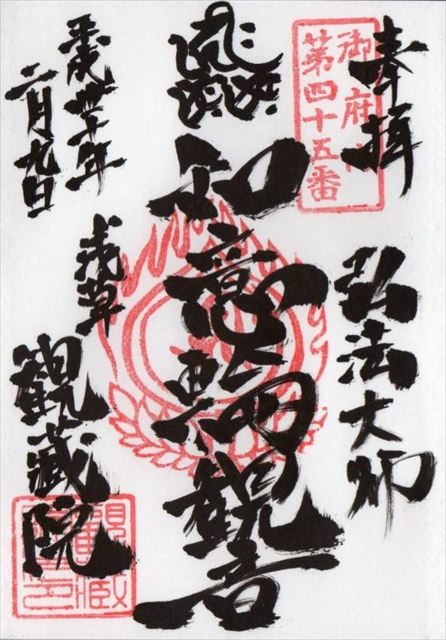 奉拝
御府内
第四十五番
弘法大師
如意輪観音
浅草
観蔵院
平成卅年
二月九日